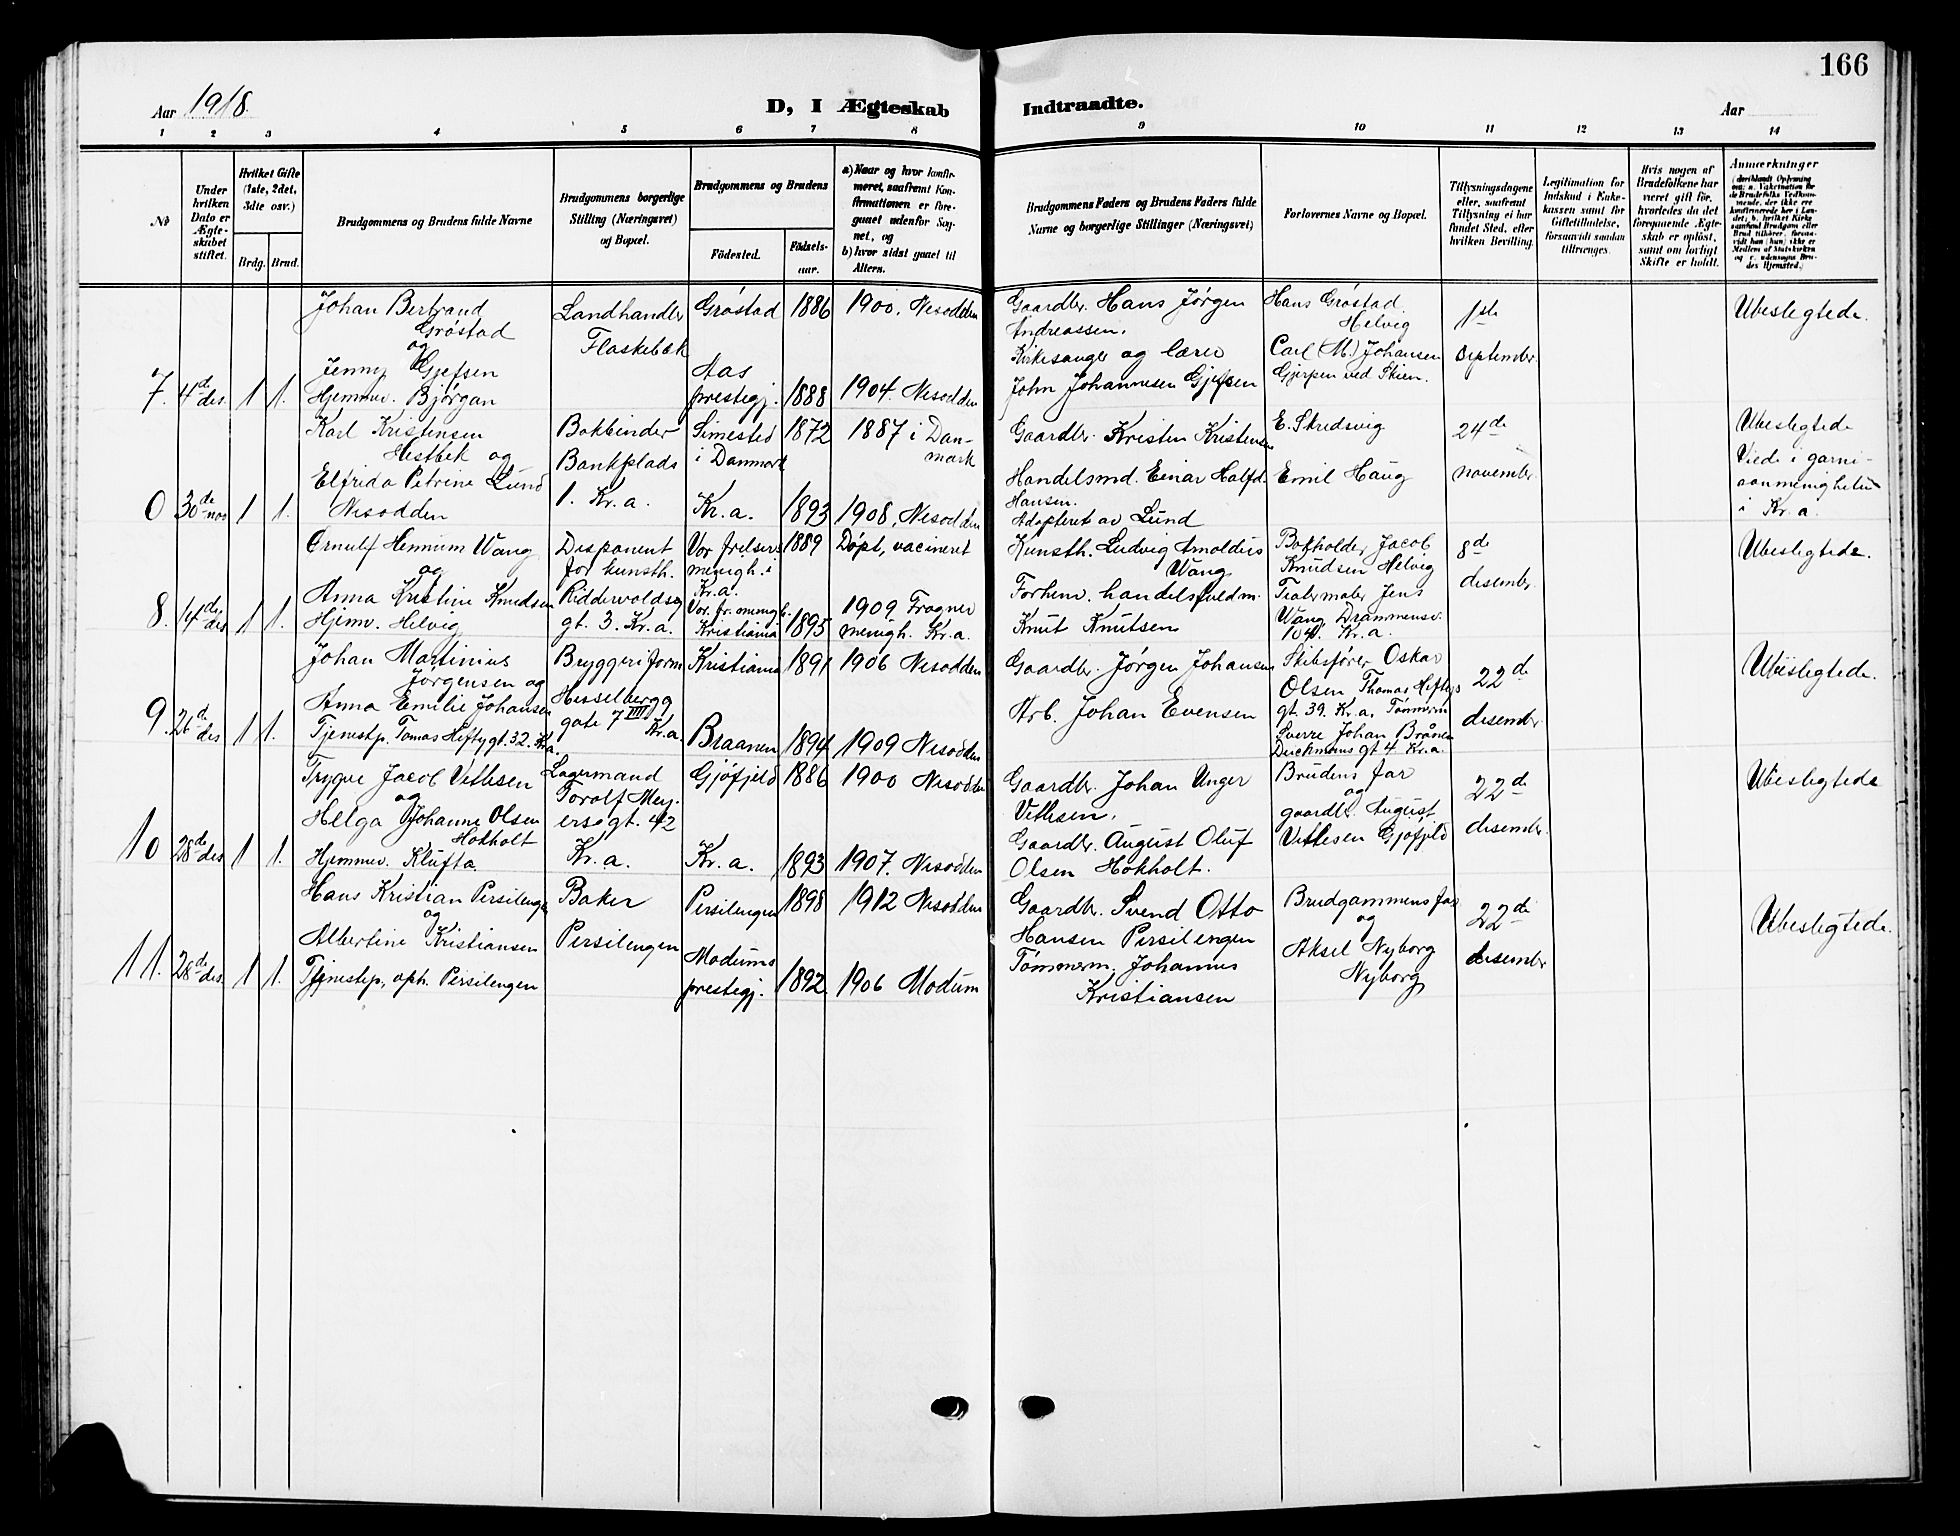 166
Aar 1918.
D, I Ægteskab
Indtraadte.
Aar
1 2 3 4 5 6 7 8 9 10 11 12 13 14
No
Under
hvilken
Dato er
Ægte-
skabet
stiftet.
Hvilket Gifte
(1ste, 2det,
3die osv.)
Brdg. Brud.
Brudgommens og Brudens fulde Navne
Brudgommens borgerlige
Stilling (Næringsvei)
og Bopæl.
Brudgommens og Brudens
Fødested.
Fødsels-
aar.
a) Naar og hvor konfir-
meret, saafremt Kon-
firmationen er fore-
gaaet udenfor Sog-
net, og
b) hvor sidst gaaet til
Alters.
Brudgommens Faders og Brudens Faders fulde
Navne og borgerlige Stillinger (Næringsvei)
Forlovernes Navne og Bopæl.
Tillysningsdagene
eller, saafremt
Tillysning ei har
fundet Sted, efter
hvilken Bevilling.
Legitimation for
Indskud i Enke-
kassen samt for
Giftetilladelse,
forsaavidt saadan
tiltrænges.
Hvis nogen af
Brudefolkene har
været gift før,
hvorledes da det
foregaaende Ægte-
skab er opløst,
samt om lovligt
Skifte er holdt.
Anmærkninger
7. 4de des. 1 1.
Johan Bertrand
Grøstad
og
Jenny Gjefsen
Hjemmev. Bjørgan
Landhandler
Flaskebek
Grøstad 1886 1900. Nesodden
Aas
prestegj. 1888 1904. Nesodden
Gaardbr. Hans Jørgen
Andreassen.
Kirkesanger og lærer
John Johannesen Gjefsen
Hans Grøstad.
Helvig
Carl (M.) Johansen
Gjerpen ved Skien.
1ste
september.
Ubeslegtede.
0 30de nov 1 1.
Karl Kristensen
Hestbek og
Elfrida Petrine Lund
Nesodden
Bokbinder
Bankplads
1. Kr.a.
Simested 1872 1887 i Dan-
i Danmark mark
Kr.a. 1893 1908, Nesodden
Gaardbr. Kristen Kristensen
Handelsmd. Einar Halfd.
Hansen.
Adopteret av Lund
E. Skredsvig
Emil Haug
24de
november.
Ubeslegtede
Viede i garni-
sonmenigheten
i Kr.a.
8. 14de des 1 1.
Ørnulf Hennum Wang
og
Anna Kristine Knudsen
Hjemv. Helvig
Disponent
for kunsth.
Ridderwoldsg
gt. 3. Kr.a.
Vor frelsers 1889 Døpt, vacineret
menigh. i
Kr.a.
Vor fr. menigh.
Kristiania 1895 1909 Frogner
menigh. Kr.a.
Kunsth. Ludvig Arnoldus
Wang
Forhenv. handelsfuldm.
Knut Knutsen
Bokholder Jacob
Knudsen Helvig
Teatermaler Jens
Wang Drammensv.
104. Kr.a.
8de
desember.
Ubeslegtede.
9. 26de des 1 1.
Johan Martinius
Jørgensen og
Anna Emilie Johansen
Tjenestp. Tomas Heftygt. 32. Kr.a.
Bryggeriform
Hesselbergg
gate 7 III
Kr.a.
Kristiania 1891 1906 Nesodden
Braanen 1894 1909 Nesodden
Gaardbr. Jørgen Johansen
Arb. Johan Evensen
Skibsfører Oskar
Olsen, Thomas Heftys
gt. 39. Kr.a. Tømmerm
Sverre Johan Brånen
Deichmans gt 4 Kr.a.
22de
desember.
Ubeslegtede.
10 28de des 1 1.
Trygve Jacob Vetlesen
og
Helga Johanne Olsen
Hokholt
Hjemmev. Klufta.
Lagermand
Torolf Mey-
ersgt. 42
Kr.a.
Gjøfjeld 1886 1900 Nesodden
Kr.a. 1893 1907. Nesodden
Gaardbr. Johan Unger
Vetlesen.
Gaardbr. August Oluf
Olsen Hokholt.
Brudens far
og
gaardbr. August
Vetlesen Gjøfjeld
22de
desember.
Ubeslegtede
11. 28de des. 1 1.
Hans Kristian Persilengen
og
Albertine Kristiansen
Tjenestep. oph. Persilengen
Baker
Persilengen
Persilengen 1898 1912 Nesodden
Modums
prestegj. 1892 1906 Modum
Gaardbr. Svend Otto
Hansen Persilengen
Tømmerm. Johannes
Kristiansen
Brudgommens far
og
Aksel Nyborg
Nyborg
22de
desember
Ubeslegtede.